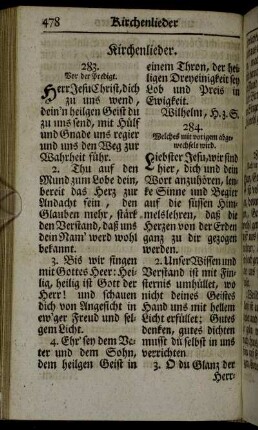 478 Kirchenlieder
Kirchenlieder.
283.
Vor der Predigt.
Herr Jesu Christ, dich
zu uns wend,
dein'n heilgen Geist du
zu uns send, mit Hülf
und Gnade uns regier
und uns den Weg zur
Wahrheit führ.
2. Thu auf den
Mund zum Lobe dein,
bereit das Herz zur
Andacht fein, den
Glauben mehr, stärk
den Verstand, daß uns
dein Nam' werd wohl
bekannt.
3. Bis wir singen
mit Gottes Heer: Hei-
lig, heilig ist Gott der
Herr! und schauen
dich von Angesicht in
ew'ger Freud und sel-
gem Licht.
4. Ehr' sey dem Va-
ter und dem Sohn,
dem heilgen Geist in
einem Thron, der hei-
ligen Dreyeinigkeit sey
Lob und Preis in
Ewigkeit.
Wilhelm, H. z. S.
284.
Welches mit vorigem abge-
wechselt wird.
Liebster Jesu, wir sind
hier, dich und dein
Wort anzuhören, len-
ke Sinne und Begier
auf die süssen Him-
melslehren, daß die
Herzen von der Erden
ganz zu dir gezogen
werden.
2. Unser Wissen und
Verstand ist mit Fin-
sternis umhüllet, wo
nicht deines Geistes
Hand uns mit hellem
Licht erfüllet; Gutes
denken, gutes dichten
must du selbst in uns
verrichten
3. O du Glanz der
Herr-